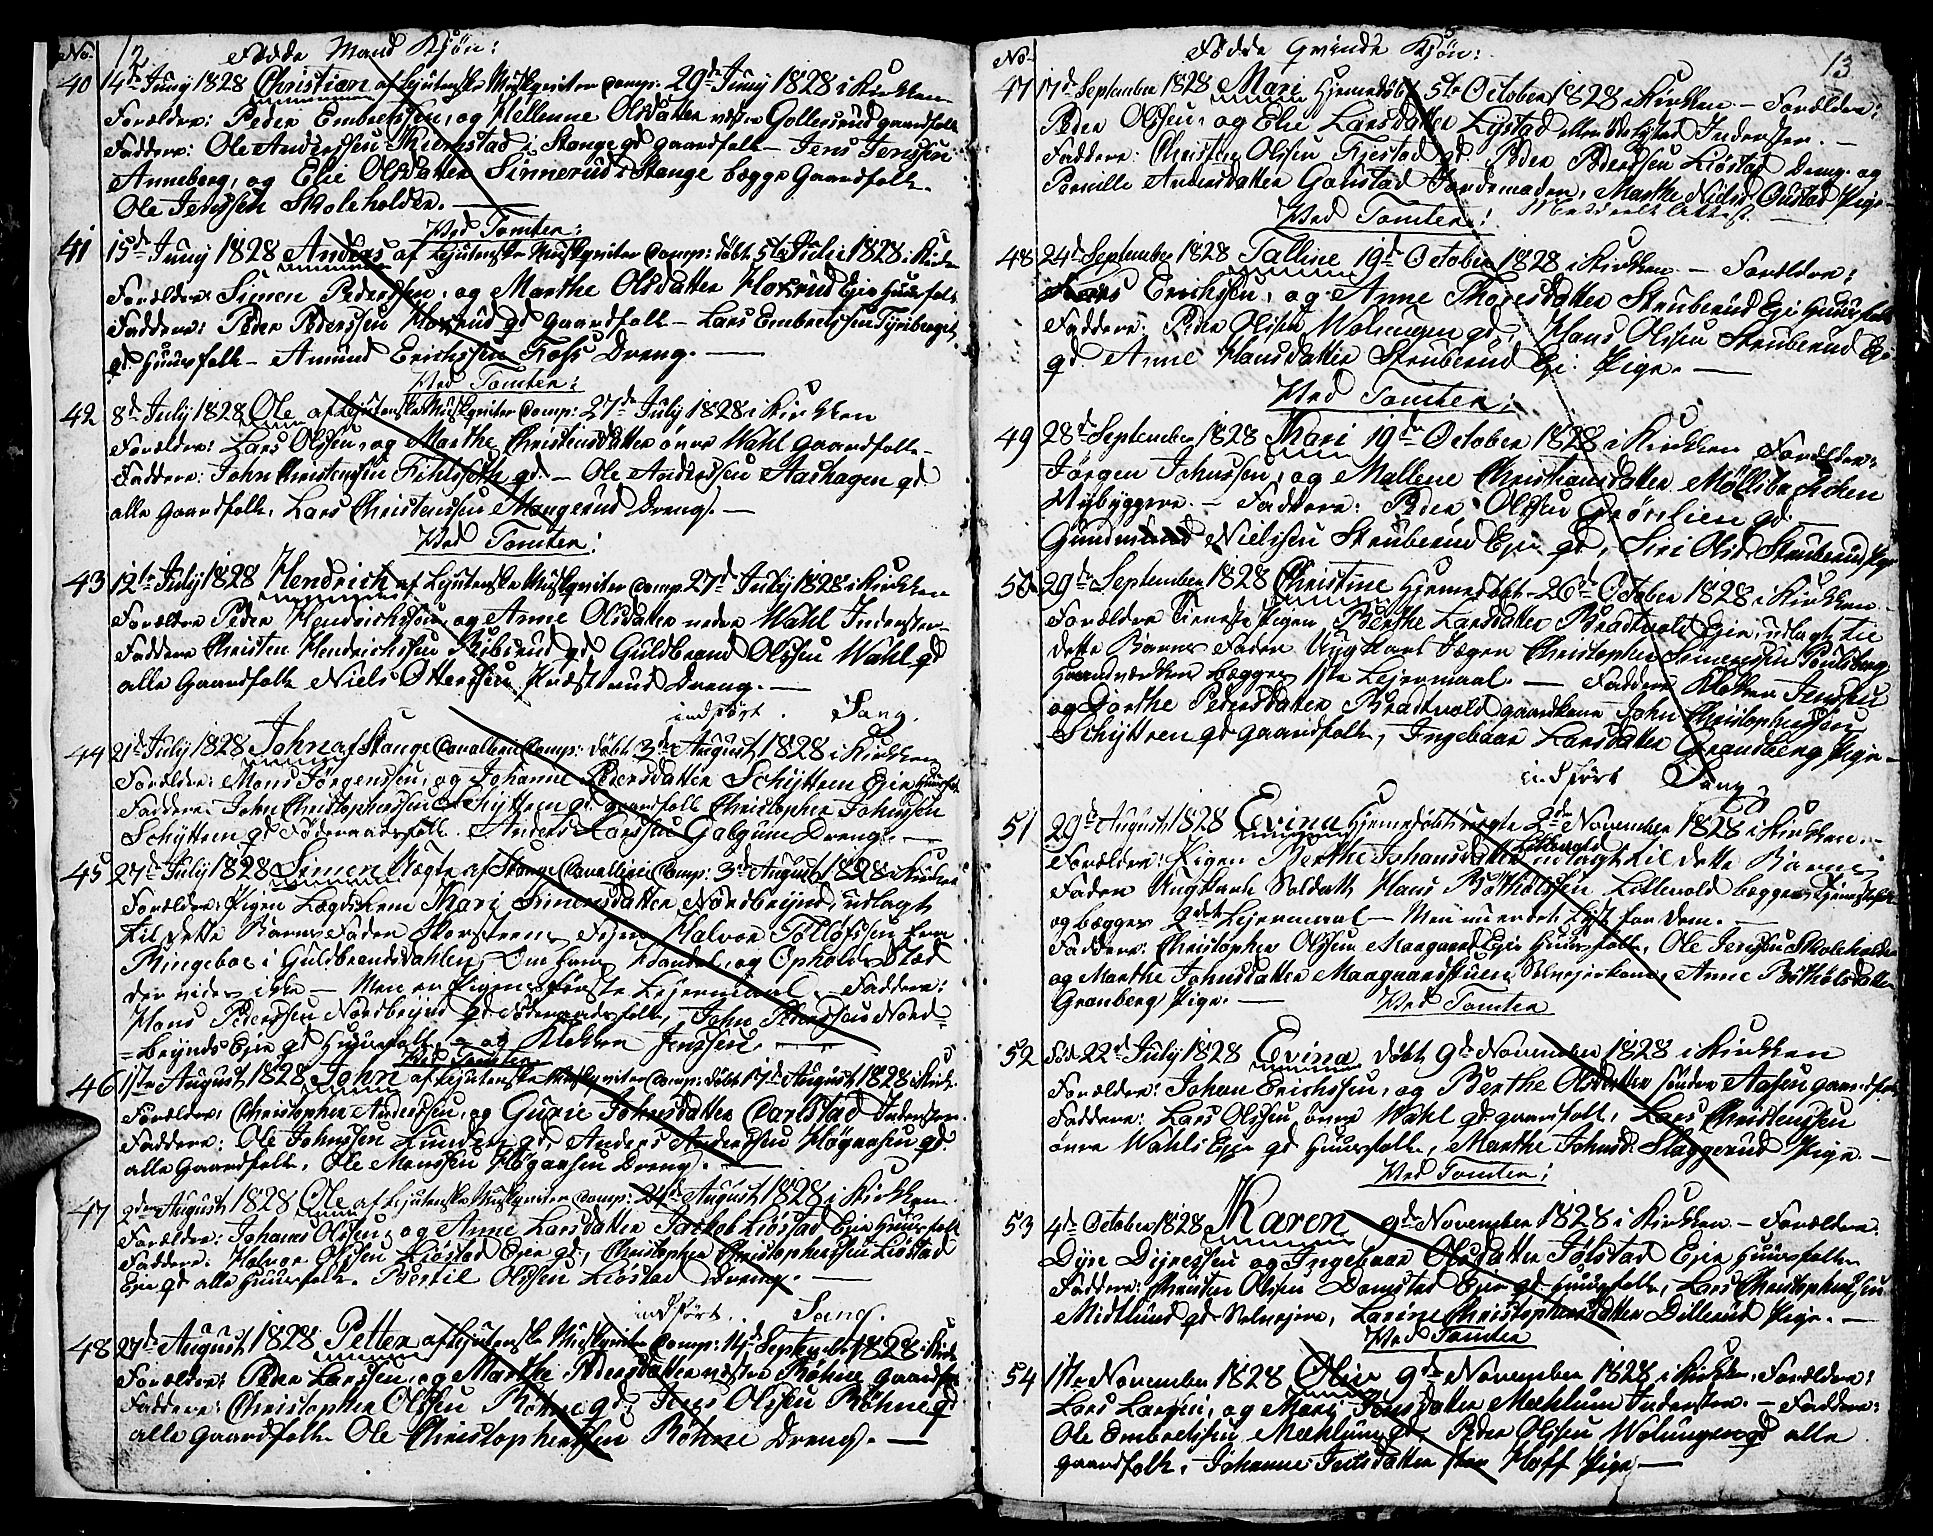 No. 12 Fødde Mand Kjøn:
40 4de Juny 1828 Christian af Lejutenske Musqueter Comp: 29de Juny 1828 i Kirken
Forældre: Peder Embretssen, og Hellenne Olsdatter næstre Gollersrud gaardfolk
Faddere: Ole Anderssen Skiernstad i Stange gd gaardfolk – Jens Jenssen
Anneberg, og Elie Olsdatter Sinnerud i Stange begge Gaardfolk.
Ole Jenssen Skoleholder. —
Ved Tomten:
41 15de Juny 1828 Andreas af Lejutenske Musqueter Comp: døbt 5te Julii 1828 i Kirk
Forældre: Simen Pederssen, og Marthe Olsdatter Hoxrud Eje Huusfolk
Faddere: Peder Pederssen Hoxrud gd Gaardfolk – Lars Embretssen Tyriberget
gd Huusfolk – Amund Erichssen Foss Dreng. —
Ved Tomten:
42 8de July 1828 Ole af Lejutenske Musqueter Comp: 27de July 1828 i Kirken
Forældre: Lars Olssen, og Marthe Christensdatter øvre Wahl Gaardfolk –
Faddere: John Christenssen gd – Ole Anderssen Stashagen gd
alle Gaardfolk, Lars Christenssen Mangerud Dreng. —
Ved Tomten:
43 12te July 1828 Hendrich af Lejutenske Musqueter Comp. 27de July 1828 i Kirken
Forældre Peder Hendrichssen, og Anne Olsdatter nedre Wahl Inderster
Faddere Christen Hendrichssen gd Guldbrand Olssen Wahl gd
alle Gaardfolk Niels Otterssen Præstrud Dreng. —
indført. Sang.
44 21de July 1828 John af Stange Cavalleri Comp: døbt 3de August 1828 i Kirken
Forældre: Mons Jørgenssen, og Johanne Pedersdatter Schyttern Eje Huusfolk
Faddere: John Christophersen Schyttern gd gaardfolk Christopher Johnssen
Schyttern gd Føderaadsfolk. Anders Larssen Galgum Dreng. —
45 27de July 1828 Simen Uægte af Stange Cavalleri Comp: 3de August 1828 i Kirken
Forældre: Pigen Lægdslem Mari Simensdatter Nordbrynd, udlagt
til dette Barns Fader Skorsteens Fejer Halvor Tolløfssen fra
Ringeboe i Guldbrandsdahlen, Om hans Handel, og Opholds Stæd
der vides ikke – Men er Pigens første Lejermaal. Faddere:
Hans Pederssen Nordbrynd gd Føderaadsfolk, John Pederssen Nord-
=brynds Eje gd Huusfolk, og Klokker Jenssen.
Ved Tomten
46 1ste August 1828 John af Lejutenske Musqueter Comp: døbt 17de August 1828 i Kirk.
Forældre: Christopher Anderssen, og Gunie Johnsdatter Carlstad Inderster.
Faddere: Ole Johnssen Lunden gd. Anders Anderssen Høgaasen gd.
alle Gaardfolk. Ole Monssen Høgaasen Dreng. —
47 2den August 1828 Ole af Lejutenske Musqueter Comp: 24de August 1828 i Kirken
Forældre: Johanes Olssen, og Anne Larsdatter Liøstad Eje Huusfolk
Faddere: Halvor Olssen Liøstad Eje gd, Christopher Christopherssen Liøstad
Eje gd alle Huusfolk. Bertil Olssen Liøstad Dreng. —
indført. Sang.
48 27de August 1828 Petter af Lejutenske Musqueter Comp: 14de September 1828 i Kirk
Forældre: Peder Larssen, og Marthe Pedersdatter næstre Røhne Gaardfolk
Faddere: Christopher Olssen Røhne gd. Jens Olssen Røhne gd
alle Gaardfolk Ole Christopherssen Røhne Dreng. —
No. Fødde Qvinde Kjøn: 13
47 17de September 1828 Mari Hjemedøbt 5te October 1828 i Kirken – Forældre:
Peder Olssen, og Elie Larsdatter Lystad Inderster. —
Faddere: Christen Olssen gd. Peder Pederssen Liøstad Dreng. og
Pernille Andersdatter Gaustad Jordemoder, Marthe Nielsd. Gustad Pige –
Ved Tomten:
48 24de September 1828 Talline 19de October 1828 i Kirken. – Forældre:
Erichssen, og Anne Thoresdatter Struberud Eje Huusfolk
Faddere: Peder Olssen Wolungen gd, Hans Olssen Struberud Eje
gd. Anne Hansdatter Struberud Eje. Pige. —
Ved Tomten:
49 28de September 1828 Mari 19de October 1828 i Kirken Forældre:
Jørgen Johnssen, og Mallene Christiansdatter Møllibachchen
Nybyggere. – Faddere: Peder Olssen Grønlien gd.
Gundmund Nielssen Struberud Eje gd, Siri Olsd. Struberud Pige
50 29de September 1828 Christine Hjemedøbt 26de October 1828 i Kirken
Forældre Tieneste Pigen Berthe Larsdatter Bradtvold Eje, udlagt til
dette Barns Fader Ungkarl Jæger Christopher Simenssen Poulsberg
Haandværker begges 1ste Lejermaal. — Faddere Klokker Jenssen
og Dorthe Pedersdatter Bradtvold gaardkone John Christopherssen
Schyttren gd gaardfolk, Ingebaar Larsdatter Grandberg Pige –
indført Sang
51 29de August 1828 Evina Hjemedøbt uægte 2de November 1828 i Kirken. –
Forældre: Pigen Berthe Johansdatter Lillevold udlagt til dette Barns
Fader Ungkarl Soldatt Hans Bøtholssen Lillevold begge Tjenestefolk
og begges 2det Lejermaal – Men nu er det Lyst for dem. —
Faddere: Christopher Olssen Maagaard Eje Huusfolk, Ole Jenssen Skoleholder
og Marthe Johnsdatter Maagaardstuen Selvejerkone, Anne Bøtholsdatter
Granberg Pige. —
Ved Tomten
52 Fød 22de July 1828 Evina døbt 9de November 1828 i Kirken
Forældre: Johan Erichssen, og Berthe Olsdatter søndre Aasen gaardfolk
Faddere: Lars Olssen øvre Wahl gd gaardfolk, Lars Christenssen
øvre Wahls Eje gd Huusfolk, Marthe Johnsd. Slaggerud Pige. —
Ved Tomten:
53 4de October 1828 Karen 9de November 1828 i Kirken – Forældre:
Dyre Dyressen og Ingebaar Olsdatter Jølstad Eje Huusfolk
Faddere: Christen Olssen Damstad Eje gd Huusfolk, Lars Christopherssen
Midtlund gd Selvejere, Larine Christophersdatter Dillerud Pige. —
Ved Tomten
54 1ste November 1828 Olive 9de November 1828 i Kirken, Forældre:
Lars Larssen, og Mari Jensdatter Mæhlum Inderster. – Faddere:
Ole Embretssen Mæhlum gd. Peder Olssen Wolungen gd alle
gaardfolk, Johanne Hoff Pige —